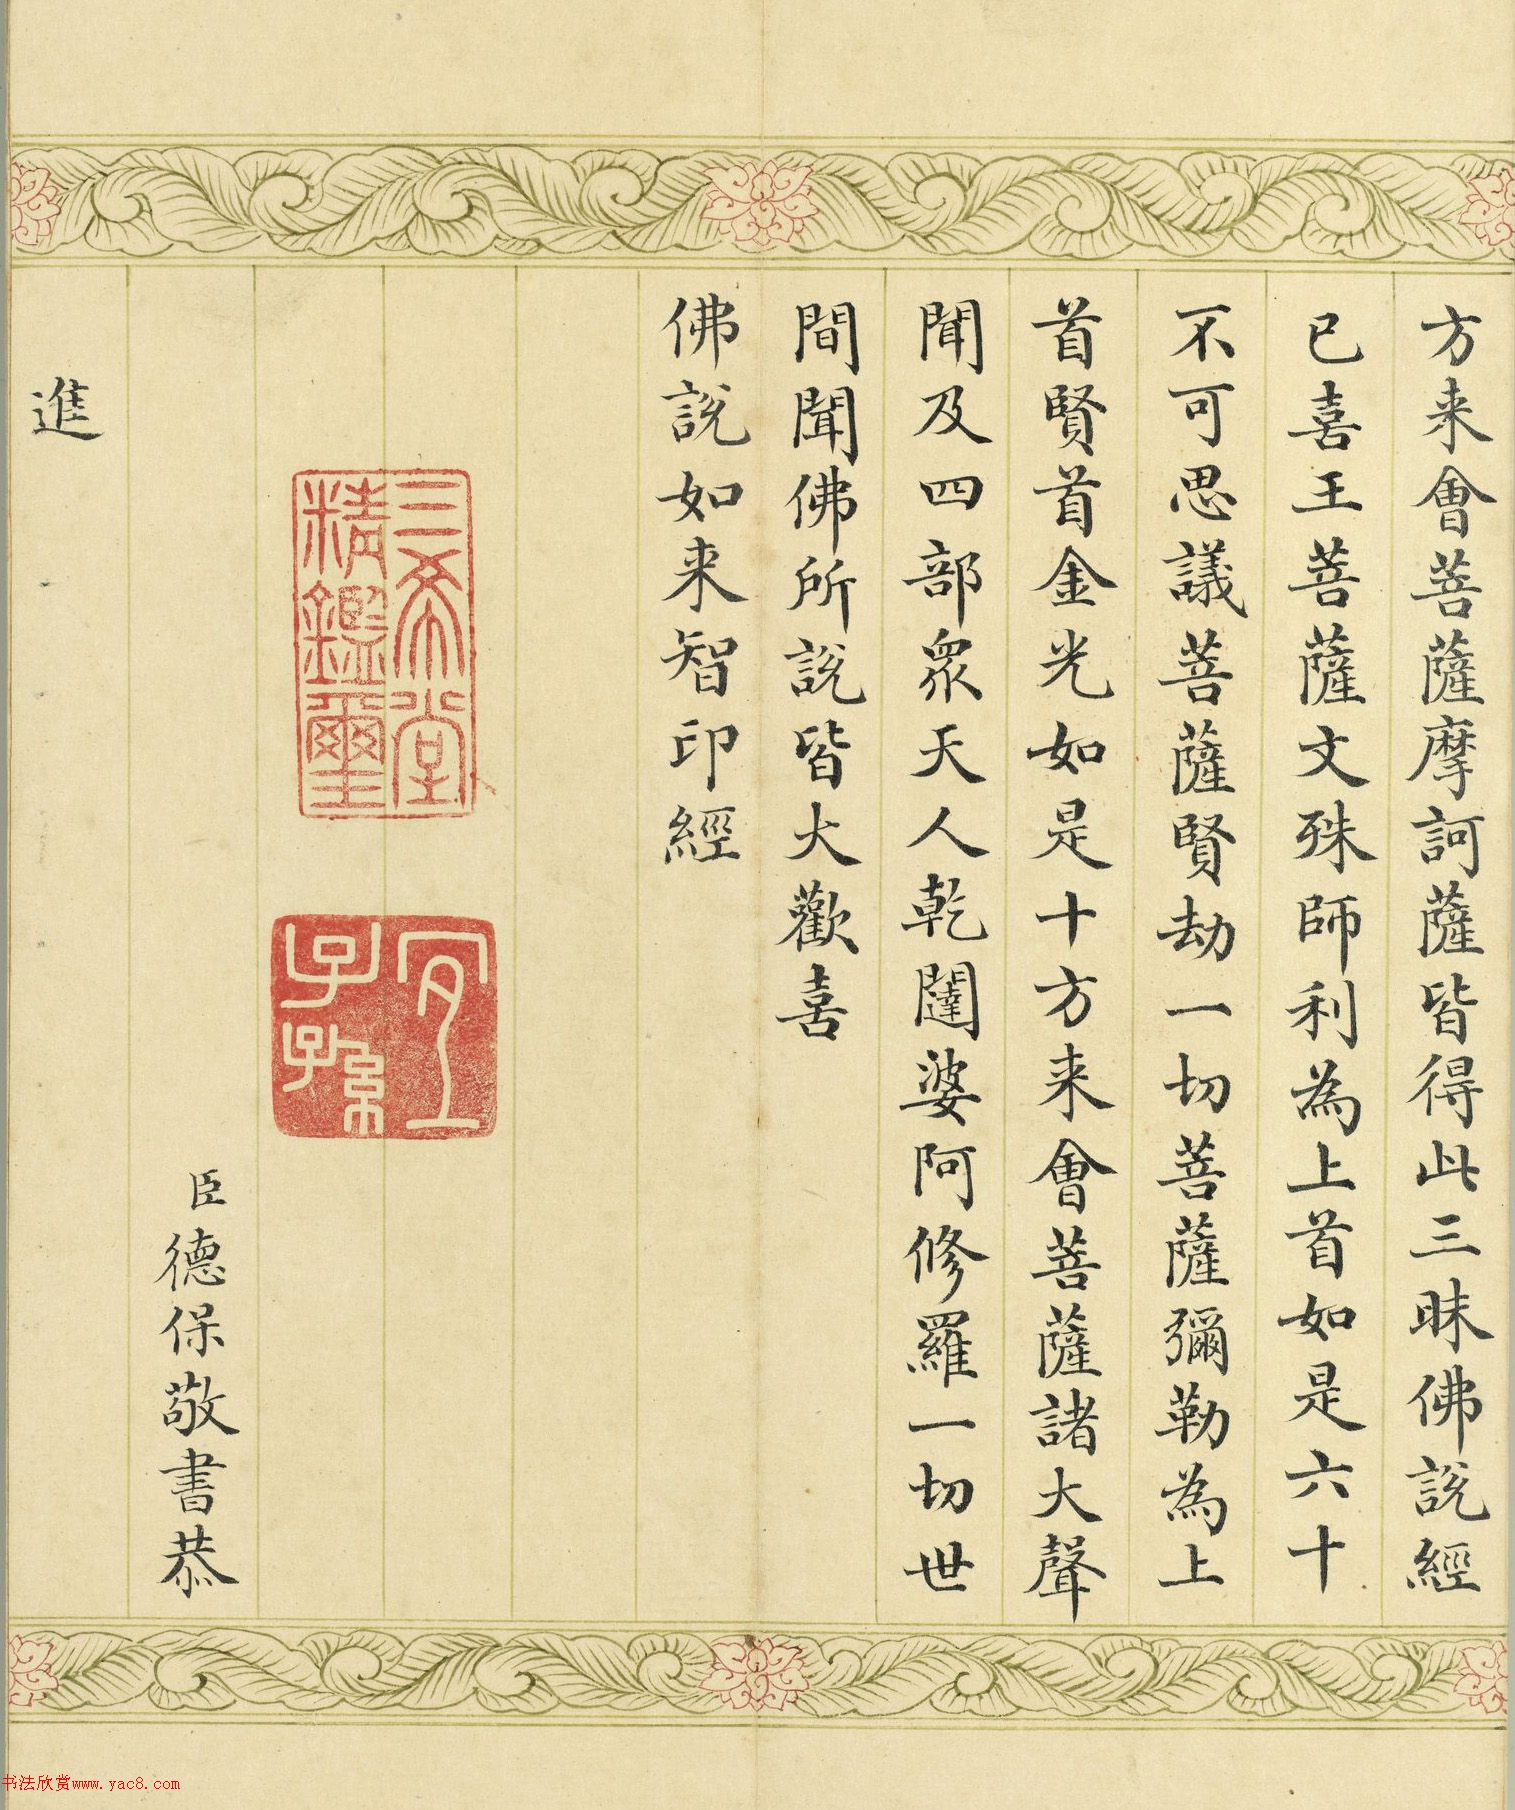 方来會菩薩摩訶薩皆得此三昧佛說經
已喜王菩薩文殊師利為上首如是六十
不可思議菩薩賢劫一切菩薩彌勒為上
首賢首金光如是十方来會菩薩諸大聲
聞及四部眾天人乾闥婆阿修羅一切世
間聞佛所說皆大歡喜
佛說如来智印經
三希堂
精鑑璽
宜
子孫
臣德保敬書恭
進
书法欣赏www.yac8.com